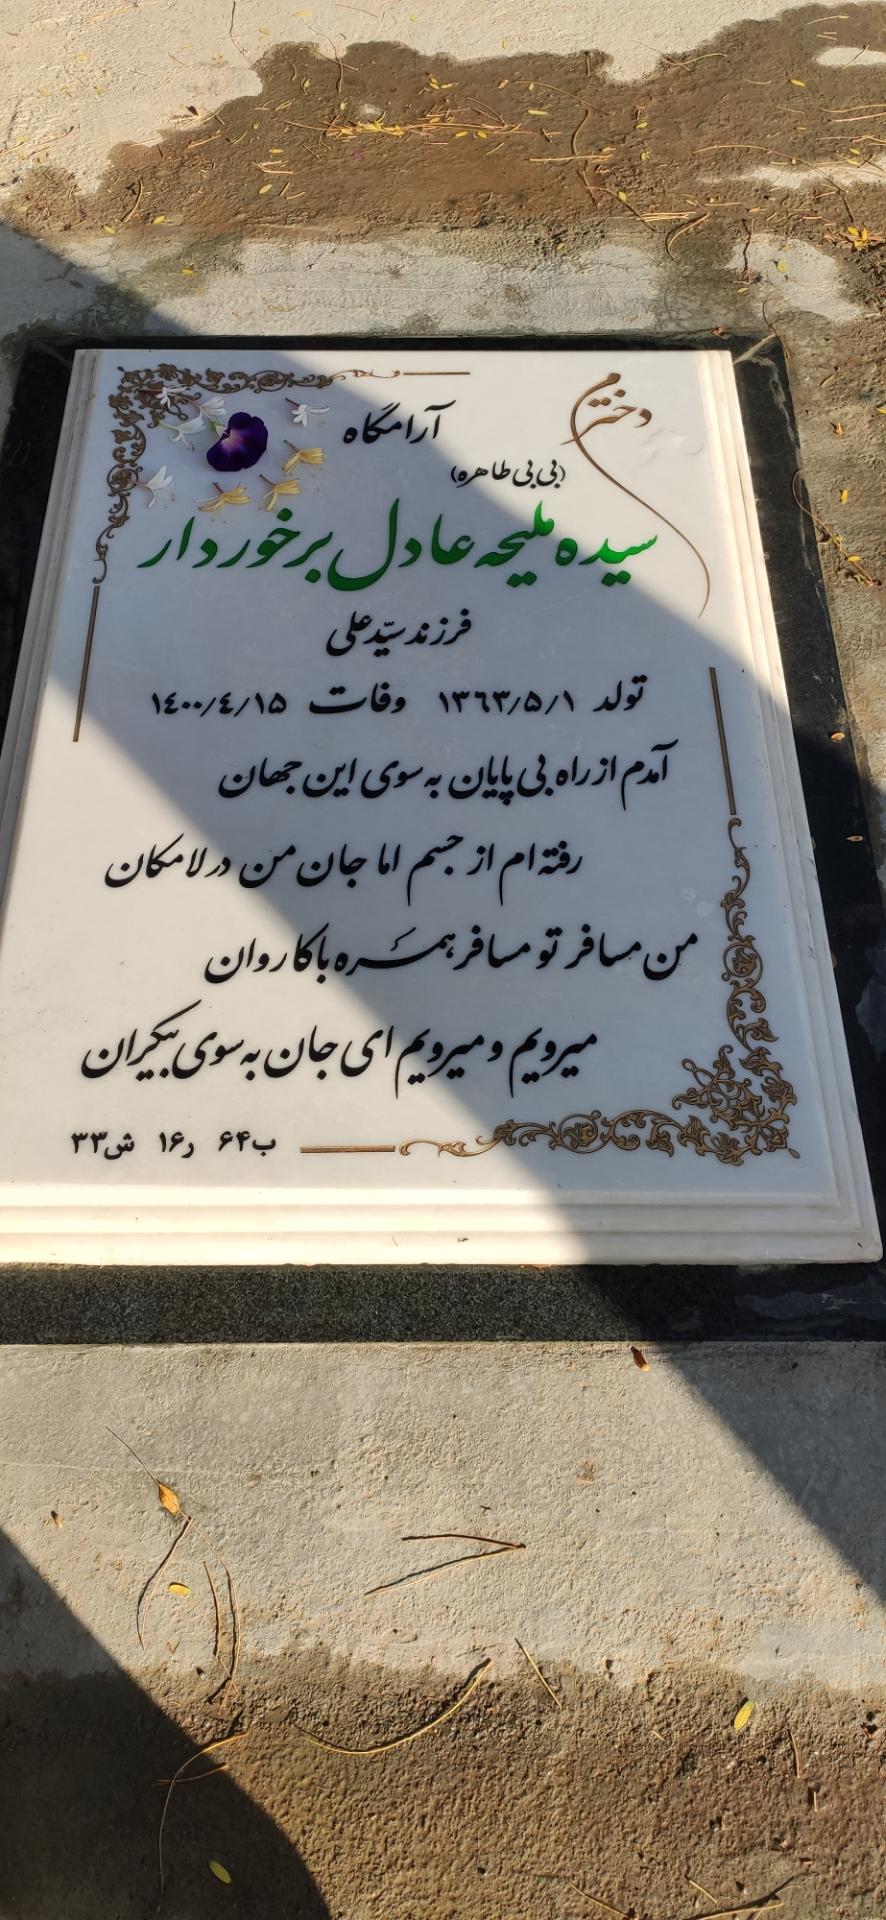 دخترم
آرامگاه
(بی بی طاهره)
سیده ملیحه عادل برخوردار
فرزند سیّد علی
تولد ۱۳۶۳/۵/۱ وفات ۱۴۰۰/۴/۱۵
آمدم از راه بی پایان به سوی این جهان
رفته ام از جسم اما جان من در لامکان
من مسافر تو مسافر همسره با کاروان
میرویم و میرویم ای جان به سوی بیکران
ب۶۴ ر۱۶ ش۳۳